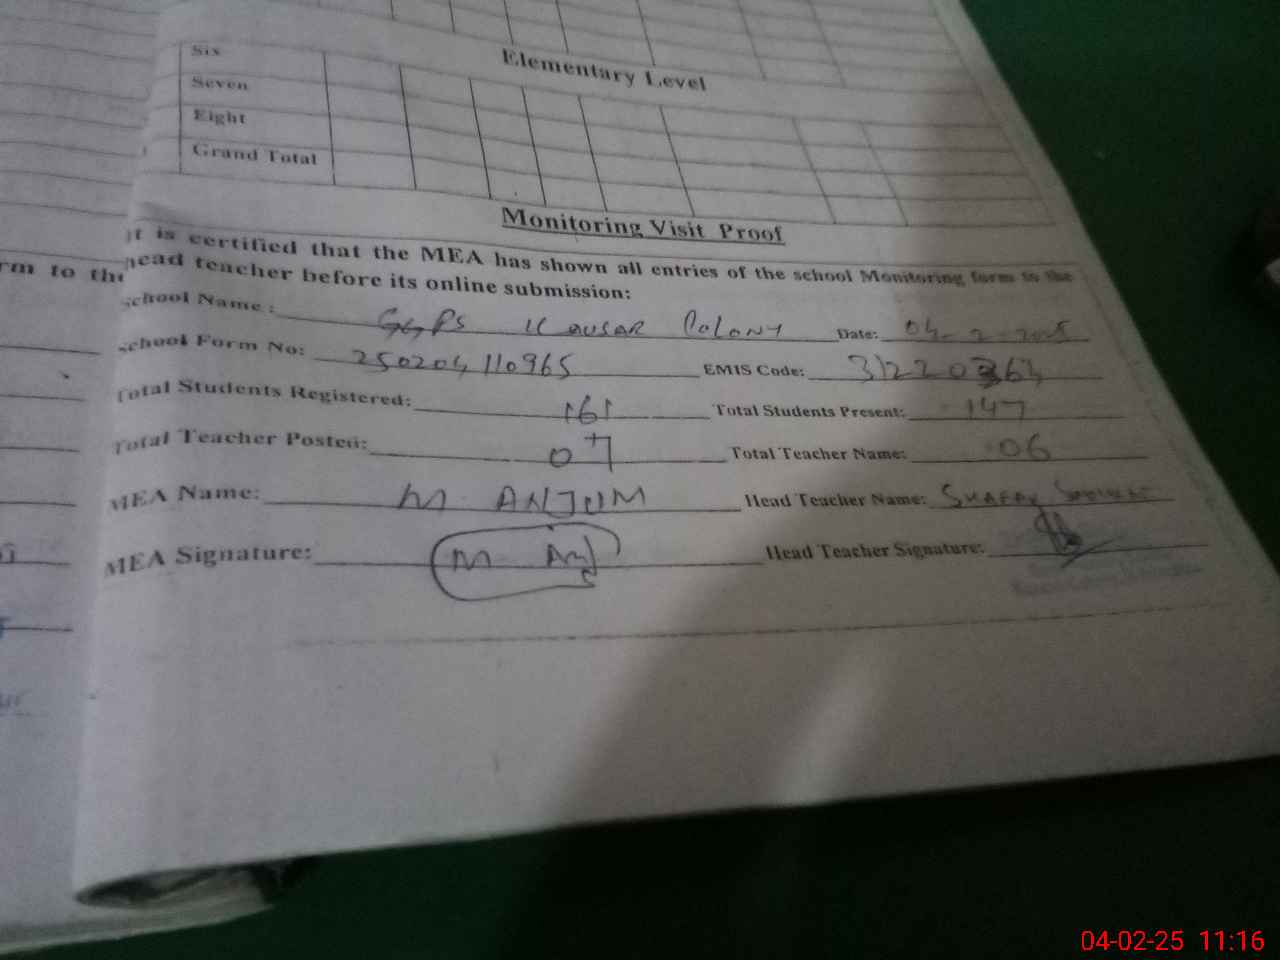 Elementary Level
Six
Seven
Eight
Grand Total
Monitoring Visit Proof
It is certified that the MEA has shown all entries of the school Monitoring form to the
rm to the
head teacher before its online submission:
School Name : GGPS Kausar Colony Date: 04-2-2025
School Form No: 250204110965 EMIS Code: 31220364
Total Students Registered: 161 Total Students Present: 147
Total Teacher Posted: 07 Total Teacher Name: 06
MEA Name: M. ANJUM Head Teacher Name:
MEA Signature: M Anj Head Teacher Signature:
04-02-25 11:16